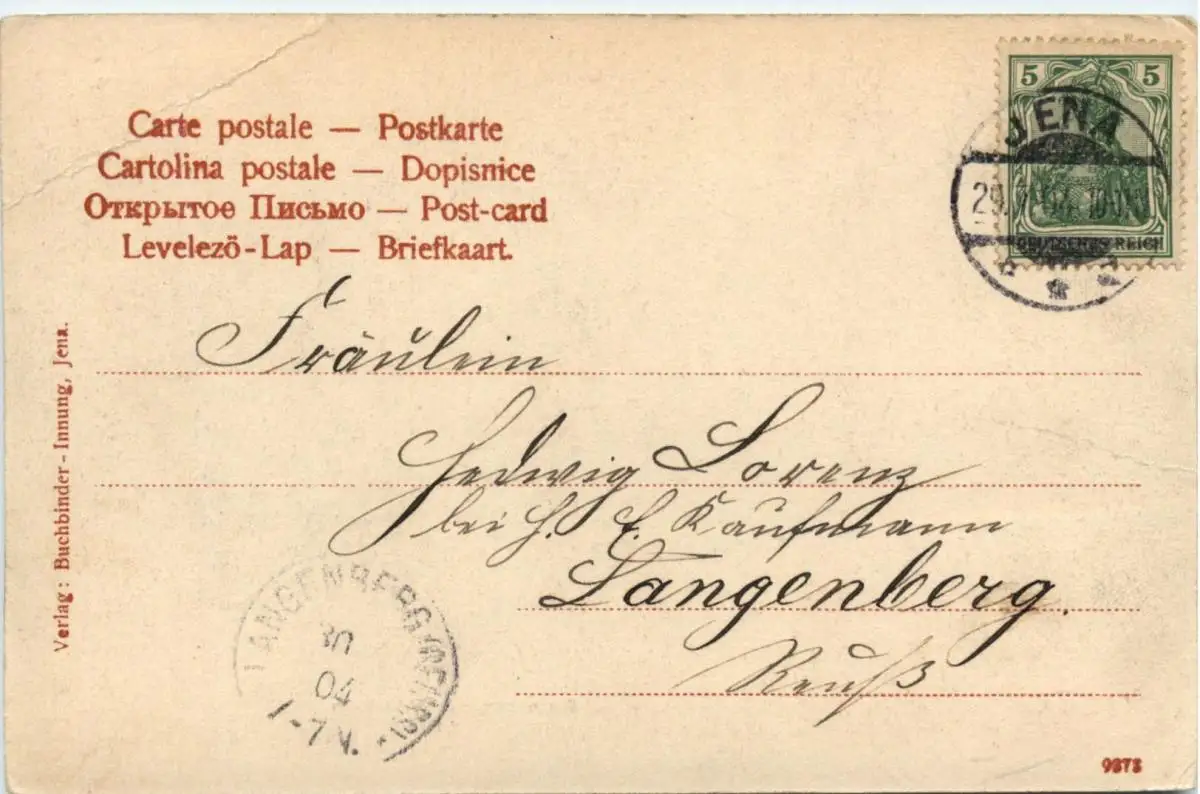 Carte postale — Postkarte
Cartolina postale — Dopisnice
Открытое Письмо — Post-card
Levelező-Lap — Briefkaart.
5 5
DEUTSCHES REICH
JENA
29.7.04. 10-11V
Fräulein
Hedwig Lorenz
bei H. E. Kaufmann
Langenberg.
Reuß
LANGENBERG (REUSS)
04
7N.
Verlag: Buchbinder-Innung, Jena.
9373